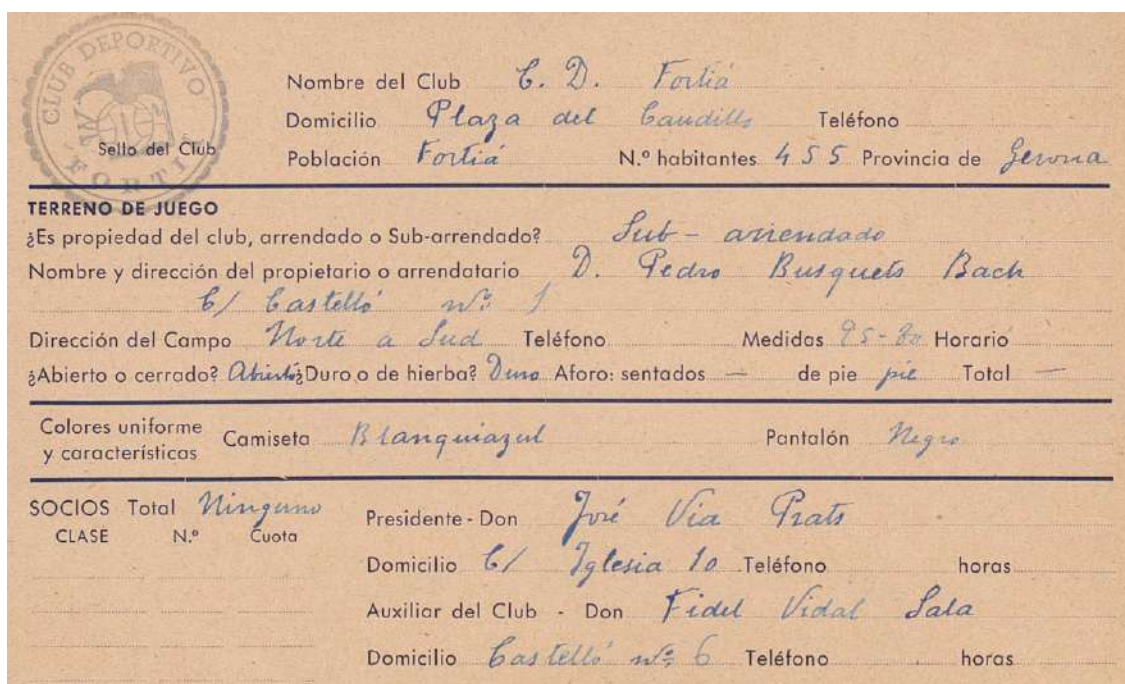 CLUB DEPORTIVO FORTIÁ
Nombre del Club C. D. Fortiá
Domicilio Plaza del Caudillo Teléfono
Sello del Club
Población Fortiá N.º habitantes 455 Provincia de Gerona
TERRENO DE JUEGO
¿Es propiedad del club, arrendado o Sub-arrendado? Sub - arriendado
Nombre y dirección del propietario o arrendatario D. Pedro Busquets Bach
C/ Castelló nº 1
Dirección del Campo Norte a Sud Teléfono Medidas 95-80 Horario
¿Abierto o cerrado? Abierto ¿Duro o de hierba? Duro Aforo: sentados — de pie pié Total —
Colores uniforme
y características Camiseta Blanquiazul Pantalón Negro
SOCIOS Total Ninguno
CLASE N.º Cuota
Presidente - Don José Via Prats
Domicilio C/ Iglesia 10 Teléfono horas
Auxiliar del Club - Don Fidel Vidal Sala
Domicilio Castelló nº 6 Teléfono horas